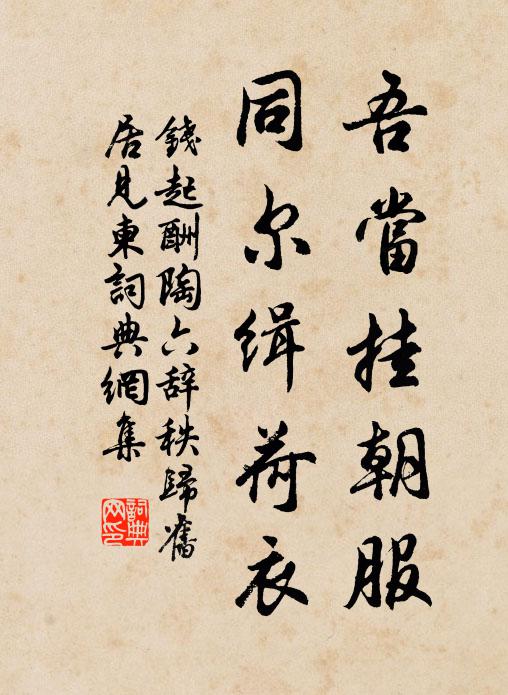 吾當挂朝服
同尔缉荷衣
錢起酬陶六辞秩歸舊
居見東詞典網集
詞典网印